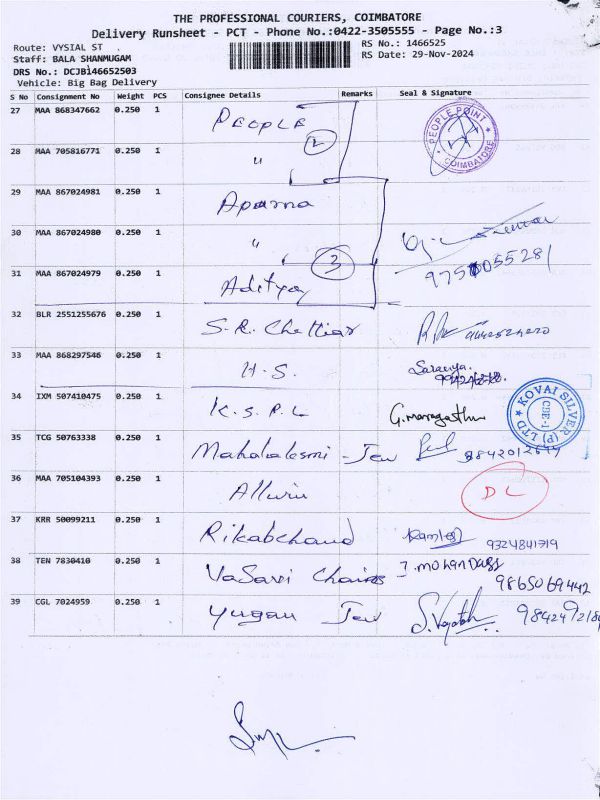 THE PROFESSIONAL COURIERS, COIMBATORE
Delivery Runsheet - PCT - Phone No.:0422-3505555 - Page No.:3
Route: VYSIAL ST . RS No.: 1466525
Staff: BALA SHANMUGAM RS Date: 29-Nov-2024
DRS No.: DCJB146652503
Vehicle: Big Bag Delivery
S No Consignment No Weight PCS Consignee Details Remarks Seal & Signature
27 MAA 868347662 0.250 1 PEOPLE PEOPLE POINT COIMBATORE
28 MAA 705816771 0.250 1 " 2
29 MAA 867024981 0.250 1 Aparna
30 MAA 867024980 0.250 1 " 3
31 MAA 867024979 0.250 1 Aditya
32 BLR 2551255676 0.250 1 S.R. Chettiar
33 MAA 868297546 0.250 1 H.S. Saranya.
34 IXM 507410475 0.250 1 K.S.P.L G.maragatham KOVAI SILVER (P) LTD CBE-1
35 TCG 50763338 0.250 1 Mahalaksmi - Jew
36 MAA 705104393 0.250 1 DL
37 KRR 50099211 0.250 1 Rikabchand
38 TEN 7830410 0.250 1 VaSavi Chains J. MOHAN DASS 9865069442
39 CGL 7024959 0.250 1 Yugan Jew